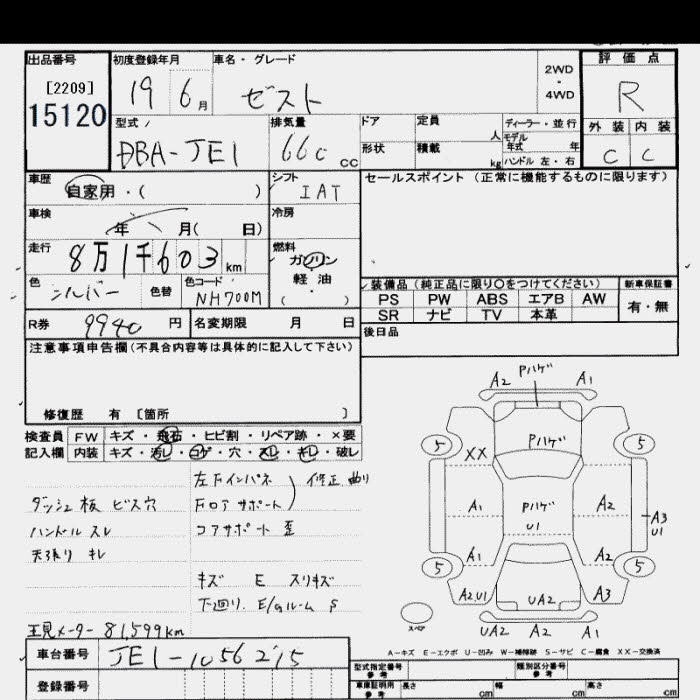 出品番号
[2209]
15120
初度登録年月
19 6月
車名・グレード
ゼスト
2WD
・
4WD
評価点
R
外装 内装
C C
型式
DBA-JE1
排気量
660 cc
ドア
形状
定員
人
積載
kg
ディーラー・並行
モデル年式 年
ハンドル 左・右
車歴
自家用・( )
シフト
IAT
セールスポイント (正常に機能するものに限ります)
車検
年 月( 日)
冷房
走行
8万1千603km
燃料
ガソリン
軽油
( )
色
シルバー
色替
色コード
NH700M
装備品(純正品に限り〇をつけてください)
PS PW ABS エアB AW
SR ナビ TV 本革
新車保証書
有・無
R券 9940 円
名変期限 月 日
後日品
注意事項申告欄(不具合内容等は具体的に記入して下さい)
修復歴 有 [箇所 ]
検査員記入欄
FW キズ・飛石・ヒビ割・リペア跡・×要
内装 キズ・汚レ・コゲ・穴・スレ・キレ・破レ
左Fインパネ 修正 曲り
ダッシュ板 ビス穴
Fロアサポート
ハンドル スレ
コアサポート 歪
天張り キレ
キズ E スリキズ
下廻り. E/Gルーム S
現メーター 81,599km
車台番号
JE1-1056215
登録番号
A2 Pハゲ A1
5 5
XX Pハゲ
A1 Pハゲ U1 A2
A3 U1
A1 A2
5 5
A2U1 UA2 A3
スペア
UA2 A2 A1
A-キズ E-エクボ U-凹み W-補修跡 S-サビ C-腐食 XX-交換済
型式指定番号
類別区分番号
車庫証明用参考
長さ cm
幅 参考 cm
高さ cm